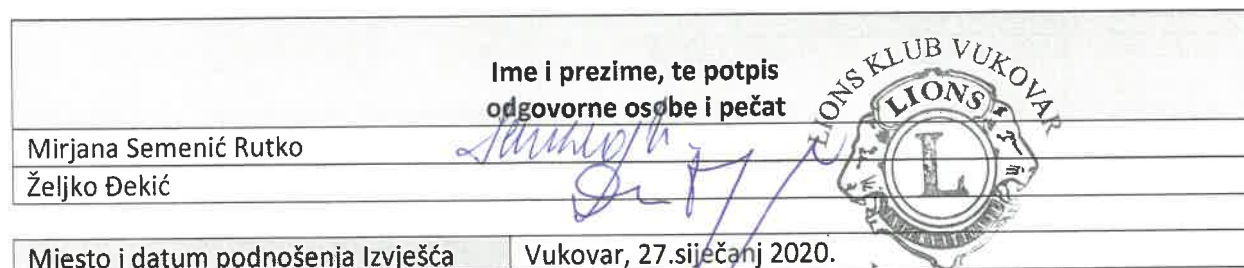 Ime i prezime, te potpis
odgovorne osobe i pečat
LIONS KLUB VUKOVAR
LIONS
L
Mirjana Semenić Rutko
Željko Đekić
Mjesto i datum podnošenja Izvješća
Vukovar, 27.siječanj 2020.